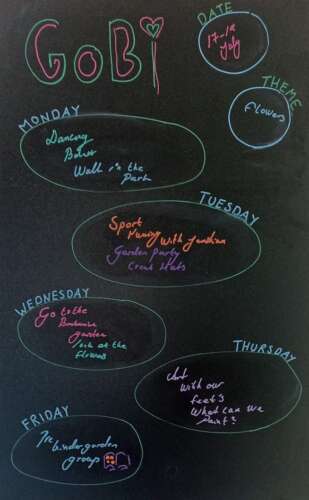 GOBI
DATE
17-1
July
THEME
Flowers
MONDAY
Dancing
Walk in the
Park
TUESDAY
Sport
with
Garden Party
Hats
WEDNESDAY
Go to the
garden
look at the
flowers
THURSDAY
Art
with our
feet's
What can we
Paint?
FRIDAY
group